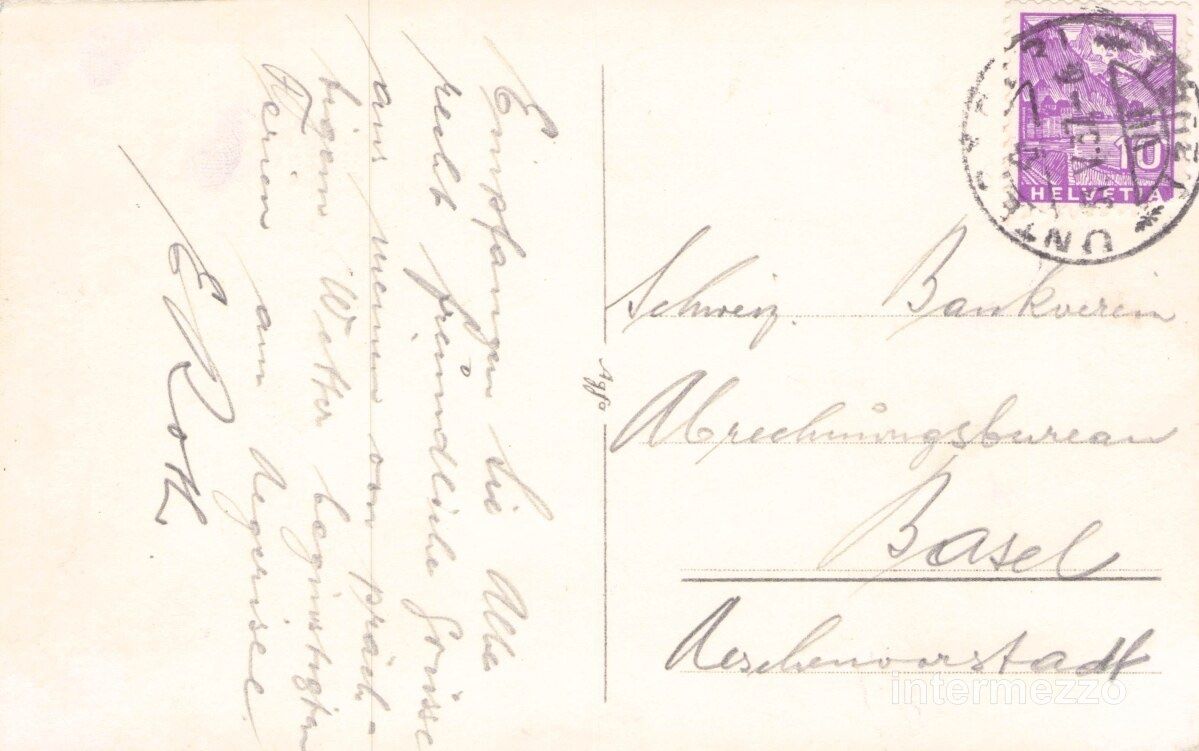 Empfangen Sie Alle
recht freundliche Grüsse
aus meinen von präch-
tigem Wetter begünstigten
Ferien am Aegerisee.
E Roth
Agfa
HELVETIA
10
UNTER
Schweiz. Bankverein
Abrechnungsbureau
Basel
Aeschenvorstadt
intermezzo